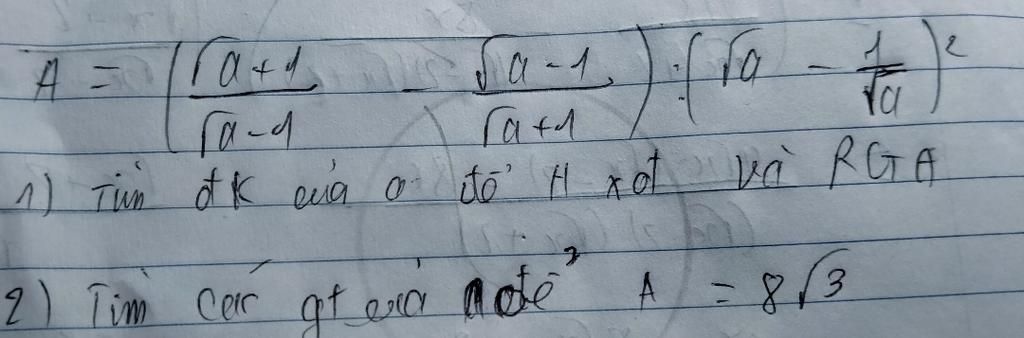 A = (\frac{\sqrt{a}+1}{\sqrt{a}-1} - \frac{\sqrt{a}-1}{\sqrt{a}+1}) : (\sqrt{a} - \frac{1}{\sqrt{a}})^2
1) Tìm đk của a để A xđ và RGA
2) Tìm các gt của a để A = 8\sqrt{3}